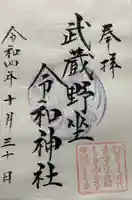 奉拝
武蔵野坐
令和神社
令和四年十月三十日